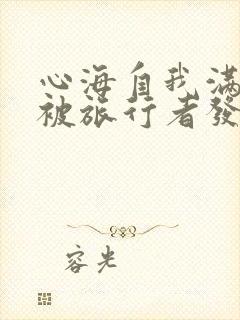 心海自我满
被旅行者發
容光